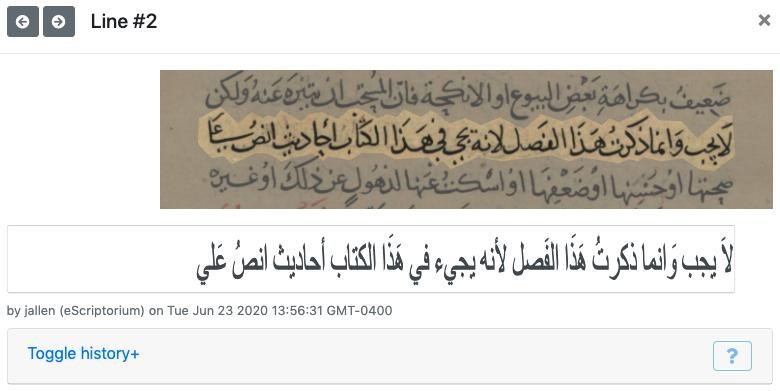 Line #2
×
ضَعِيفٌ بكراهَةِ بَعْضِ البيوع او الانكحة فانّ المُسْتَحَبّ ان يَتَنَزَّهَ عَنْهُ ولكن
لا يجب وَانما ذكرتُ هَذَا الفَصل لانه يجي في هَذَا الكتَاب احَاديث انصُ عَلَى
صحتها اوحُسْنِهَا اوضَعْفِهَا او اسْكتُ عَنهَا لذهُولٍ عن ذَلكَ اوغيره
لاَ يجب وَانما ذكرتُ هَذَا الفَصل لأنه يجيء في هَذَا الكتاب أحاديث انصُ عَلي
by jallen (eScriptorium) on Tue Jun 23 2020 13:56:31 GMT-0400
Toggle history+
?